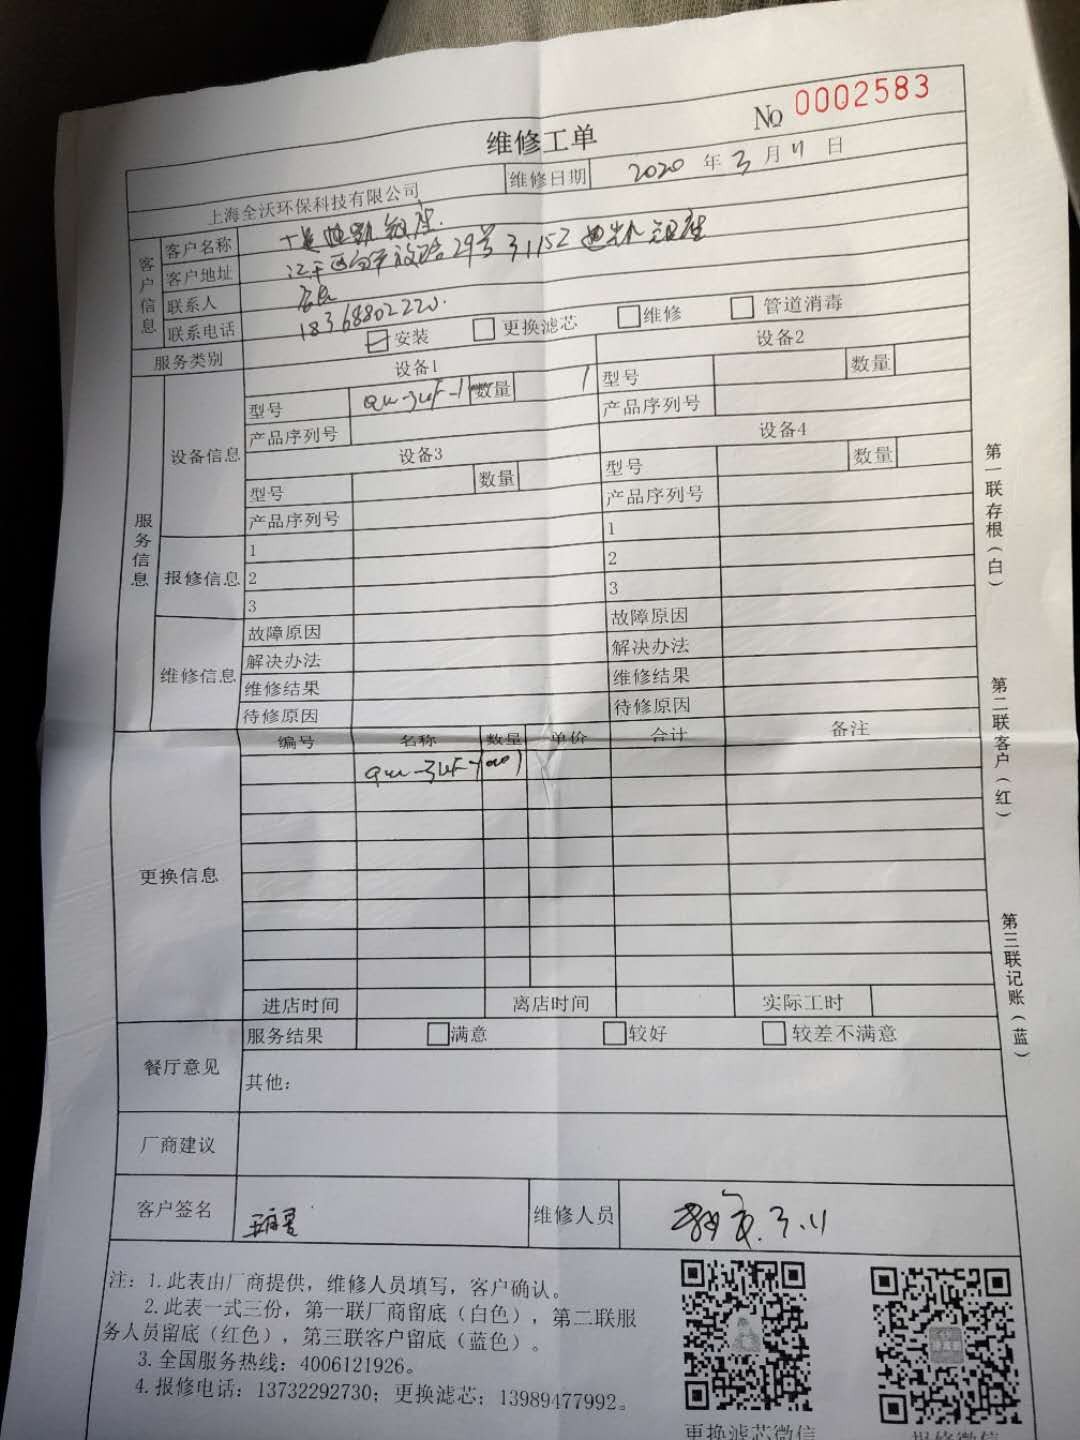 No 0002583
维修工单
上海全沃环保科技有限公司 维修日期 2020 年 3 月 11 日
客户信息
客户名称
客户地址 29号
联系人
联系电话 18368802220.
服务类别 安装 更换滤芯 维修 管道消毒
服务信息
设备信息
设备1 设备2
型号 数量 1 型号 数量
产品序列号 产品序列号
设备3 设备4
型号 数量 型号 数量
产品序列号 产品序列号
报修信息
1 1
2 2
3 3
维修信息
故障原因 故障原因
解决办法 解决办法
维修结果 维修结果
待修原因 待修原因
更换信息
编号 名称 数量 单价 合计 备注
进店时间 离店时间 实际工时
餐厅意见
服务结果 满意 较好 较差不满意
其他：
厂商建议
客户签名 维修人员 3.11
注：1.此表由厂商提供，维修人员填写，客户确认。
2.此表一式三份，第一联厂商留底（白色），第二联服
务人员留底（红色），第三联客户留底（蓝色）。
3.全国服务热线：4006121926。
4.报修电话：13732292730；更换滤芯：13989477992。
更换滤芯微信
报修微信
第一联存根（白）
第二联客户（红）
第三联记账（蓝）